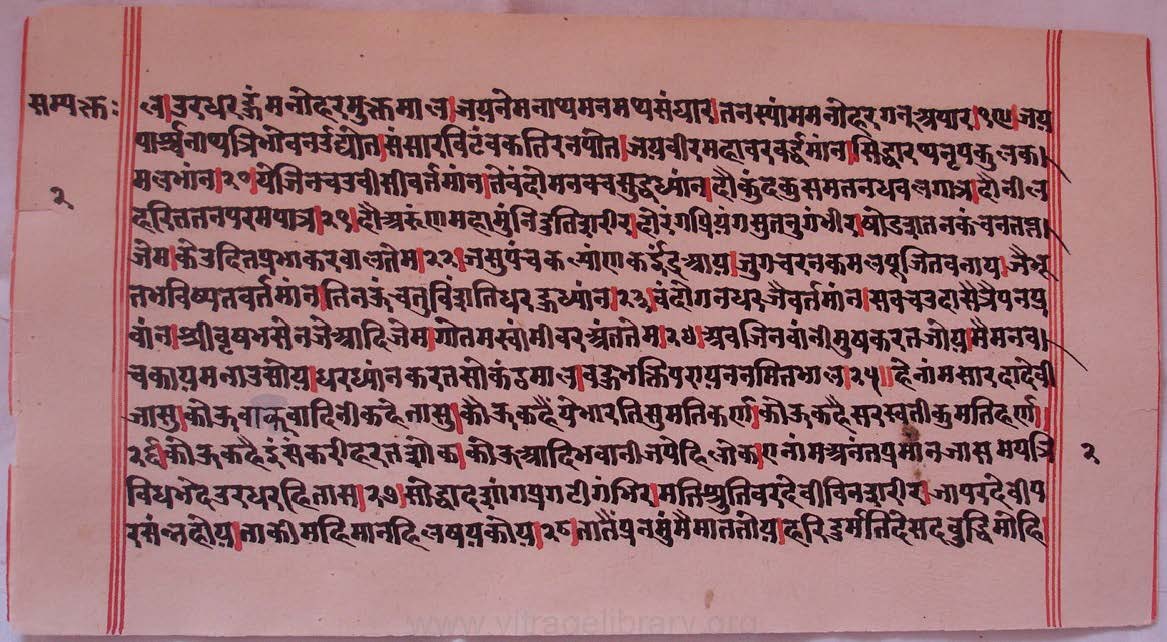 सम्यक्तः
ल।उरधरहुं मनोहरमुक्तमाल।जयनेमनाथमनमथसंघार।तनस्यांममनोहरगनअपार।१९।जय
पार्श्वनाथत्रिभोवनउद्योत।संसारविटंवकतिरनपोत।जयवीरमहावरवर्द्धमांन।सिद्धारथनृपकुलक।
मलभांन।२०।येजिनचउवीसीवर्तमांन।तेवंदोमनवचसुद्धध्यांन।दौकुंदकुसमतनधवलगात्र।दौनील
हरिततनपरमपात्र।२१।दौअरूंणमहामुंनिदुतिशरीर।दोरंगप्रियंगसुतनुगंभीर।षोडशतनकंचनतप्त।
जेम।कैउदितप्रभाकरवालतेम।२२।जसुपंचकल्यांणकइंद्रआय।जुगचरनकमलपूजितवनाय।जैभू
तभविष्यतवर्तमांन।तिनकऊंचतुविंशतिधरहुध्यांन।२३।वंदोगनधरजैवर्तमांन।सवचउदासैत्रैपनप्र
वांन।श्रीवृषभसेनजेआदिजेम।गोतमस्वांमीवरअंततेम।२४।अवजिनवांनीमुषकरतजोय।मैमनव।
चकायमनाउसोय।धरध्यांनकरतसोकंठमाल।वहुभक्तिपरायननमितभाल।२५॥हैनांमसारदादेवी
जासु।कोऊवाकवादिनीकहैतासु।कोऊकहैयेभारतिसुमतिकर्ण।कोऊकहैसरस्वतीकुमतिहर्ण॥
२६।कोऊकहैइंसंकरीहरतशोक।कोऊआदिभवानीजपेहिलोक।एनांमअनंतप्रमांनजासमयत्रि
विधभेदउरधरहितास।२७।सोद्वादशांगप्रगटीगंभिर।मतिश्रुतिवरदेवीविनशरीर।जापरदेवीप
रसंन्नहोय।ताकीमहिमानहिलषयकोय।२८।तातैंप्रनमुंमैमाततोय।हरिदुर्मतिदेसदवुद्धिमोहि।
२
२
www.vitragelibrary.org